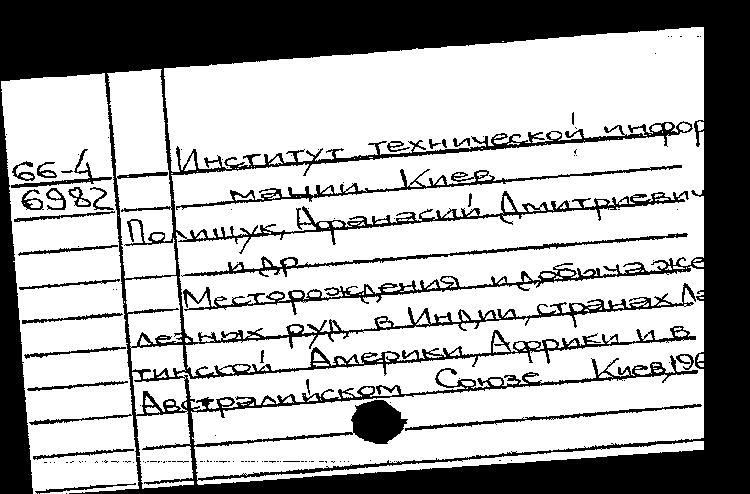 66-4 Институт технической инфор
6982 мации. Киев.
Полищук, Афанасий Дмитриевич
и др
Месторождения и добыча же
лезных руд в Индии, странах Ла
тинской Америки, Африки и в
Австралийском Союзе Киев, 196